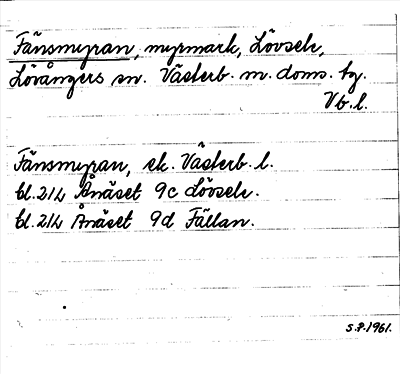 Fänsmyran, myrmark, Lövsele,
Lövångers sn. Västerb. m. doms. tg.
Vb. l.
Fänsmyran, ek. Västerb. l.
bl. 21L Ånäset 9c Lövsele.
bl. 21L Ånäset 9d Fällan.
S.P. 1961.